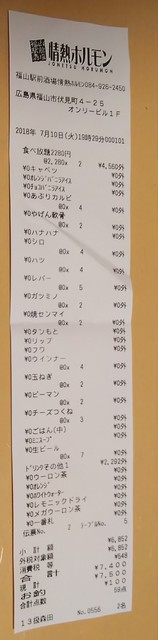 情熱ホルモン
JONETSU HORUMON
福山駅前酒場情熱ホルモン084-926-2450
広島県福山市伏見町4-25
オンリービル1F
2018年 7月10日(火)19時29分000101
食べ放題2280円
@2,280x 2 ¥4,560外
¥0キャベツ ¥0外
¥0オレンジバニラアイス ¥0外
¥0チョコバニラアイス ¥0外
¥0あぶりカルビ
@0x 4 ¥0外
¥0やげん軟骨
@0x 2 ¥0外
¥0ハナハナ ¥0外
¥0シロ
@0x ¥0外
¥0ハツ
@0x ¥0外
¥0レバー
@0x 5 ¥0外
¥0ガツミノ
@0x ¥0外
¥0焼センマイ
@0x 2 ¥0外
¥0タンもと ¥0外
¥0リップ ¥0外
¥0フワ ¥0外
¥0ウインナー
@0x 4 ¥0外
¥0玉ねぎ
@0x 2 ¥0外
¥0ピーマン
@0x 2 ¥0外
¥0チーズつくね
@0x 3 ¥0外
¥0ごはん(中) ¥0外
¥0ミニスープ ¥0外
¥0生ビール
@0x 7 ¥0外
ドリンクその他1
¥0ウーロン茶 ¥0外
¥0オレンジ ¥0外
¥0ホワイトウォーター ¥0外
¥0レモニックドライ ¥0外
¥0メガウーロン茶 ¥0外
¥0一番札 ¥0外
伝票No. 2 テーブルNo. 5
小計 ¥6,852
外税対象額 ¥6,852
消費税等 ¥548
合計 ¥7,400
現計 ¥7,500
お釣 ¥100
合計点数 58点
No.0556 2名
13段森田